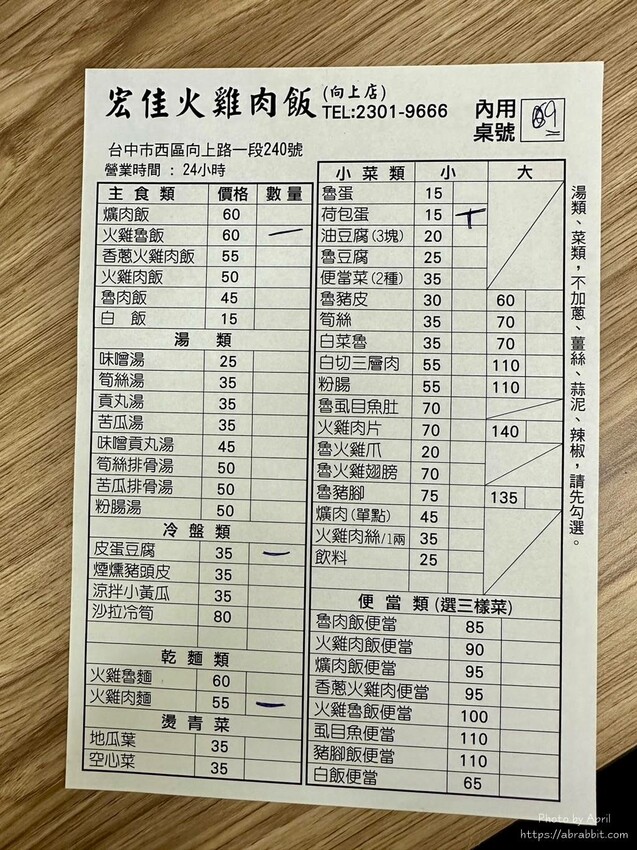 宏佳火雞肉飯 (向上店)
TEL:2301-9666
內用桌號 69
台中市西區向上路一段240號
營業時間 : 24小時
主食類 價格 數量
爌肉飯 60
火雞魯飯 60 一
香蔥火雞肉飯 55
火雞肉飯 50
魯肉飯 45
白 飯 15
湯 類
味噌湯 25
筍絲湯 35
貢丸湯 35
苦瓜湯 35
味噌貢丸湯 45
筍絲排骨湯 50
苦瓜排骨湯 50
粉腸湯 50
冷盤類
皮蛋豆腐 35 一
煙燻豬頭皮 35
涼拌小黃瓜 35
沙拉冷筍 80
乾麵類
火雞魯麵 60
火雞肉麵 55 一
燙青菜
地瓜葉 35
空心菜 35
小菜類 小 大
魯蛋 15
荷包蛋 15 丅
油豆腐(3塊) 20
魯豆腐 25
便當菜(2種) 35
魯豬皮 30 60
筍絲 35 70
白菜魯 35 70
白切三層肉 55 110
粉腸 55 110
魯虱目魚肚 70
火雞肉片 70 140
魯火雞爪 20
魯火雞翅膀 70
魯豬腳 75 135
爌肉(單點) 45
火雞肉絲/1兩 35
飲料 25
便當類(選三樣菜)
魯肉飯便當 85
火雞肉飯便當 90
爌肉飯便當 95
香蔥火雞肉便當 95
火雞魯飯便當 100
虱目魚便當 110
豬腳飯便當 110
白飯便當 65
湯類、菜類，不加蔥、薑絲、蒜泥、辣椒，請先勾選。
Photo by April
https://abrabbit.com